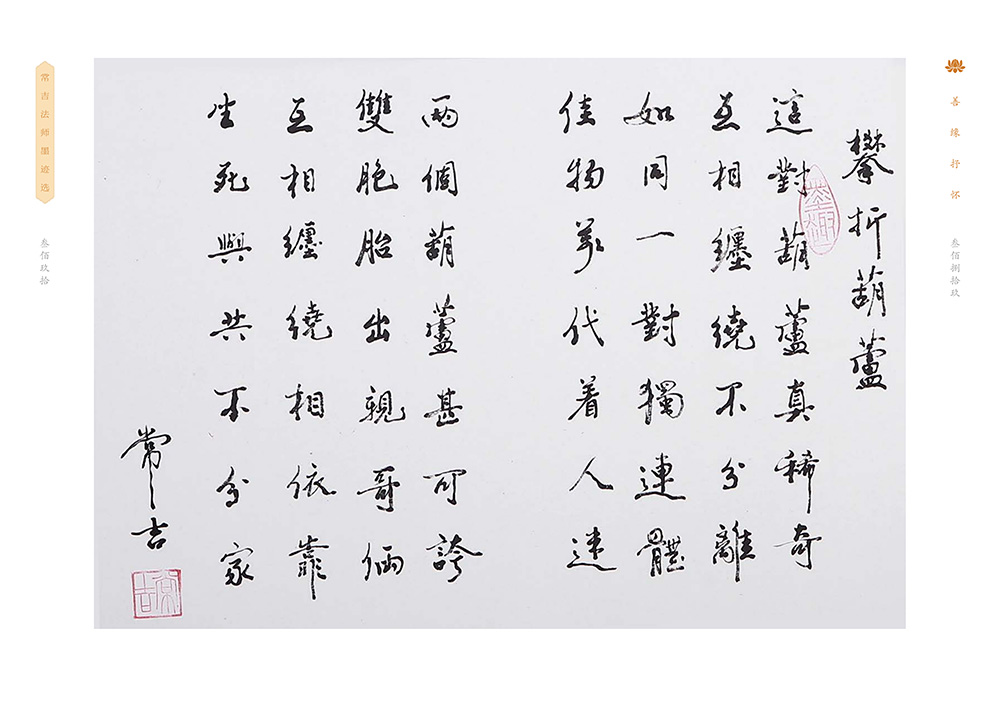 善缘抒怀
叁佰捌拾玖
攀折葫蘆
這對葫蘆真稀奇
互相纏繞不分離
如同一對獨連體
佳物代着人迷
兩個葫蘆甚可誇
雙胞胎出親哥倆
互相纏繞相依靠
生死與共不分家
常吉
常吉
常吉法师墨迹选
叁佰玖拾